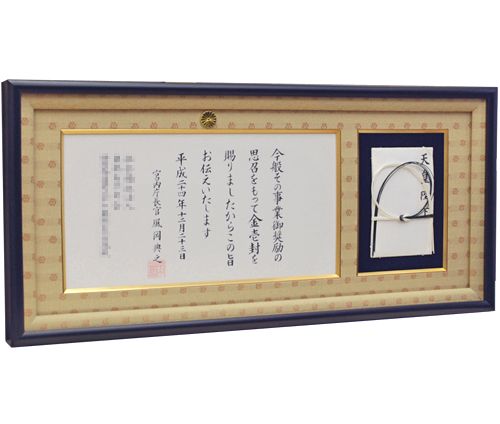 今般その事業御奨励の
思召をもって金壱封を
賜りましたからこの旨
お伝えいたします
平成二十四年十二月二十三日
宮内庁長官 風岡典之
天皇陛下